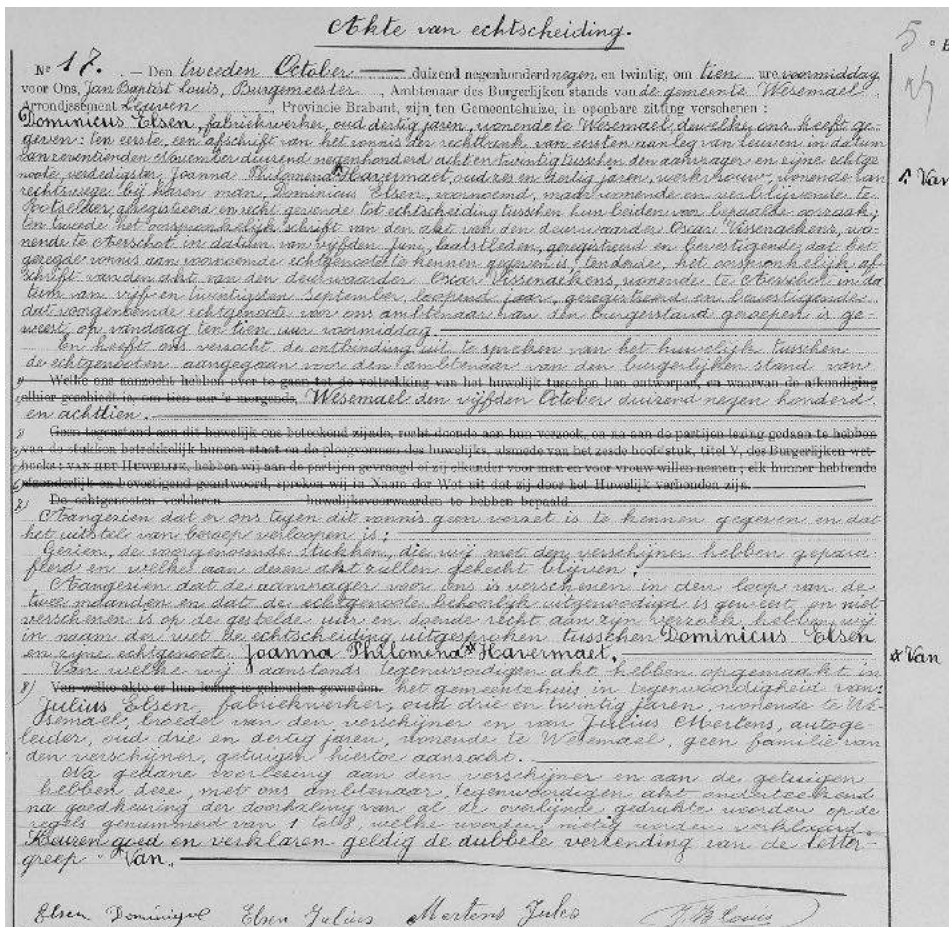 Akte van echtscheiding.
5
Nº 17. — Den tweeden October — duizend negenhonderd negen en twintig, om tien ure voormiddag
voor Ons, Jan Baptist Louis, Burgemeester, Ambtenaar des Burgerlijken stands van de gemeente Wesemael,
Arrondissement Leuven, Provincie Brabant, zijn ten Gemeentehuize, in openbare zitting verschenen :
Dominicus Elsen, fabriekwerker, oud dertig jaren, wonende te Wesemael, dewelke ons heeft ge-
geven: ten eerste, een afschrift van het vonnis der rechtbank van eersten aanleg van Leuven in datum
van zeventienden november duizend negenhonderd acht en twintig tusschen den aanvrager en zijne echtge
noote, verdedigster, Joanna Philomena Havermaet, oud zes en dertig jaren, werkvrouw, wonende van
rechtswege bij haren man, Dominicus Elsen, voornoemd, maar wonende en verblijvende te
Rotselaer, geregistreerd en recht gevende tot echtscheiding tusschen hun beiden voor bepaalde oorzaak;
ten tweede het oorspronkelijk schrift van den akt van den deurwaarder Oscar Vissenaekens, wo-
nende te Aerschot in datum van vijfden Juni, laatstleden, geregistreerd en bevestigende dat het
gezegde vonnis aan voornoemde echtgenoote te kennen gegeven is, ten derde, het oorspronkelijk af-
schrift van den akt van den deurwaarder Oscar Vissenaekens, wonende te Aerschot in da
tum van vijf en twintigsten September, loopend jaar, geregistreerd en bevestigende
dat voorgenoemde echtgenoote voor ons ambtenaar van den burgerstand geroepen is ge-
weest op vandaag ten tien uur voormiddag.
En heeft ons verzocht de ontbinding uit te spreken van het huwelijk tusschen
de echtgenooten aangegaan voor den ambtenaar van den burgerlijken stand van
Welke ons aanzocht hebben over te gaan tot de voltrekking van het huwelijk tusschen hun ontworpen, en waarvan de afkondiging
alhier geschiedt is, om tien uur 's morgends, Wesemael den vijfden October duizend negen honderd
en achttien.
Geen tegenstand aan dit huwelijk ons beteekend zijnde, recht doende aan hun verzoek, en na aan de partijen lezing gedaan te hebben
van de stukken betrekkelijk hunnen staat en de pleegvormen des huwelijks, alsmede van het zesde hoofdstuk, titel V, des Burgerlijken wet-
boeks: VAN HET HUWELIJK, hebben wij aan de partijen gevraagd of zij elkander voor man en voor vrouw willen nemen ; elk hunner hebbende
afzonderlijk en bevestigend geantwoord, spreken wij in Naam der Wet uit dat zij door het Huwelijk verbonden zijn.
De echtgenooten verklaren huwelijksvoorwaarden te hebben bepaald
Aangezien dat er ons tegen dit vonnis geen verzet is te kennen gegeven en dat
het uitstel van beroep verloopen is:
Gezien, de voorgenoemde stukken, die wij met den verschijner hebben gepara-
feerd en welke aan dezen akt zullen gehecht blijven;
Aangezien dat de aanvrager voor ons is verschenen in den loop van de
twee maanden en dat de echtgenoote behoorlijk uitgenoodigd is geweest, en niet
verschenen is op de gestelde uur en doende recht aan zijn verzoek, hebben wij
in naam der wet de echtscheiding uitgesproken tusschen Dominicus Elsen
en zijne echtgenoote Joanna Philomena * Havermaet.
* Van
Van welke wij aanstonds tegenwoordigen akt hebben opgemaakt in
8) Van welke akte er hun lezing is gehouden geworden. het gemeentehuis in tegenwoordigheid van:
Julius Elsen, fabriekwerker, oud drie en twintig jaren, wonende te We-
semael, broeder van den verschijner en van Julius Mertens, autoge-
leider, oud drie en dertig jaren, wonende te Wesemael, geen familie van
den verschijner, getuigen hiertoe aanzocht.
Na gedane overlezing aan den verschijner en aan de getuigen
hebben deze, met ons ambtenaar, tegenwoordigen akt onderteekend
na goedkeuring der doorhaling van al de overlijnde gedrukte woorden op de
regels genummerd van 1 tot 8, welke woorden nietig worden verklaard.
Keuren goed en verklaren geldig de dubbele verzending van de letter-
greep "Van".
Elsen Dominique Elsen Julius Mertens Jules J B Louis